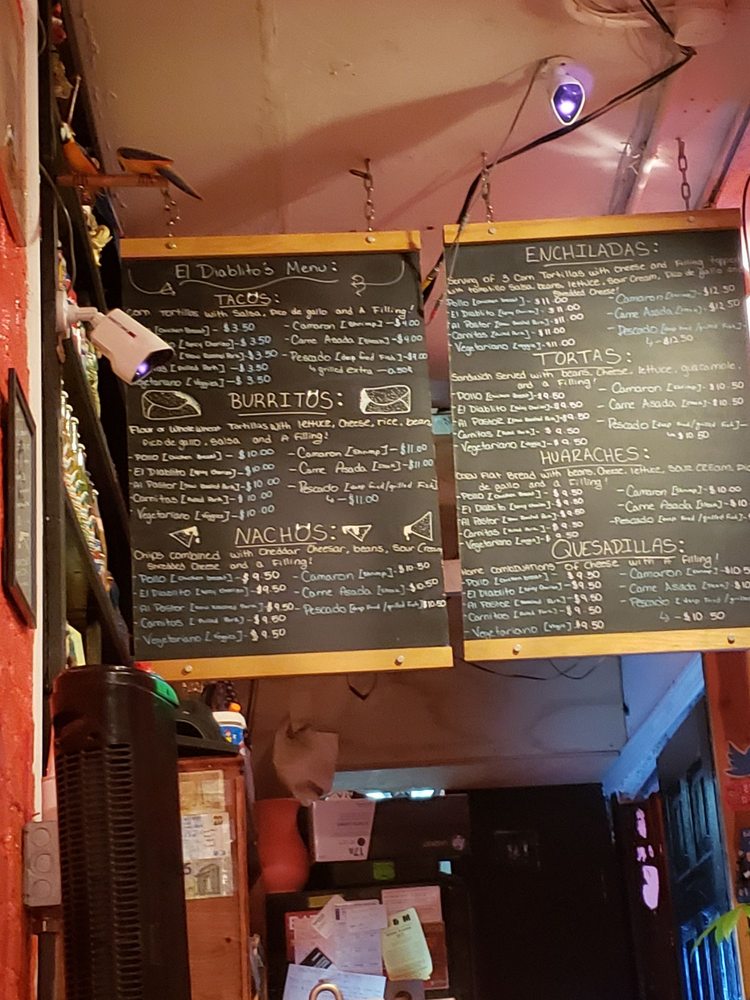 El Diablito's Menu:
TACOS:
Corn tortillas with Salsa, Pico de gallo and A Filling!
[Chicken breast] - $3.50
- Camaron [Shrimp] - $4.00
- $3.50
- Carne Asada [Steak] - $4.00
- $3.50
- Pescado [deep fried fish] - $4.00
- $3.50
↳ grilled extra - 0.50¢
[Veggies] - $3.50
BURRITOS:
Flour or Wholewheat Tortillas with lettuce, Cheese, rice, beans
Pico de gallo, Salsa and A filling!
- Pollo [Chicken breast] - $10.00
- Camaron [Shrimp] - $11.00
- El Diablito [Spicy Chorizo] - $10.00
- Carne Asada [Steak] - $11.00
- Al Pastor - $10.00
- Pescado [deep fried/grilled Fish]
- Carnitas [Pulled Pork] - $10.00
↳ - $11.00
- Vegetariano [Veggies] - $10.00
NACHOS:
Chips combined with Cheddar Cheese, beans, Sour Cream
Shredded Cheese and a Filling!
- Pollo [Chicken breast] - $9.50
- Camaron [Shrimp] - $10.50
- El Diablito [Spicy Chorizo] - $9.50
- Carne Asada [Steak] - $10.50
- Al Pastor - $9.50
- Pescado [deep fried/grilled Fish] - $10.50
- Carnitas [Pulled Pork] - $9.50
- Vegetariano [Veggies] - $9.50
ENCHILADAS:
Serving of 3 Corn Tortillas with Cheese and Filling topped
with tomatillo Salsa, beans, lettuce, Sour Cream, Pico de gallo and
Shredded Cheese!
Pollo [Chicken breast] - $11.00
- Camaron [Shrimp] - $12.50
El Diablito - $11.00
- Carne Asada [Steak] - $12.50
Al Pastor - $11.00
- Pescado [deep fried/grilled Fish]
Carnitas [Pulled Pork] - $11.00
↳ - $12.50
Vegetariano [Veggies] - $11.00
TORTAS:
Sandwich Served with beans, Cheese, lettuce, guacamole,
and a Filling!
- Pollo [Chicken breast] - $9.50
- Camaron [Shrimp] - $10.50
- El Diablito - $9.50
- Carne Asada [Steak] - $10.50
- Al Pastor - $9.50
- Pescado [deep fried/grilled Fish] -
- Carnitas - $9.50
↳ $10.50
- Vegetariano - $9.50
HUARACHES:
Flat Bread with beans, Cheese, lettuce, Sour Cream, Pico
de gallo and a Filling!
- Pollo [Chicken breast] - $9.50
- Camaron [Shrimp] - $10.50
- El Diablito - $9.50
- Carne Asada [Steak] - $10
- Al Pastor - $9.50
- Pescado [deep fried/grilled Fish]
- Carnitas - $9.50
- Vegetariano - $9.50
QUESADILLAS:
Combinations of Cheese with A Filling!
- Pollo [Chicken breast] - $9.50
- Camaron - $10.5
- El Diablito - $9.50
- Carne Asada [Steak] - $10
- Al Pastor - $9.50
- Pescado [deep fried/grilled Fish]
- Carnitas [Pulled Pork] - $9.50
↳ - $10.50
- Vegetariano - $9.50